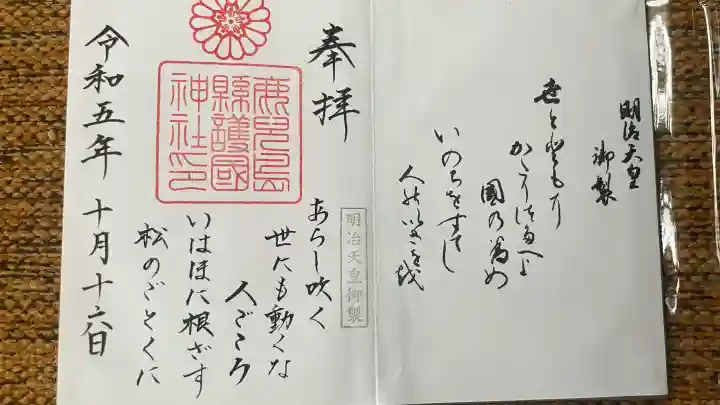 明治天皇
御製
世と登もに
かたりつたへよ
國乃為め
いのちをすてし
人のいさを越
奉拝
鹿兒島
縣護國
神社印
明治天皇御製
あらし吹く
世にも動くな
人ごころ
いはほに根ざす
松のごとくに
令和五年 十月十六日